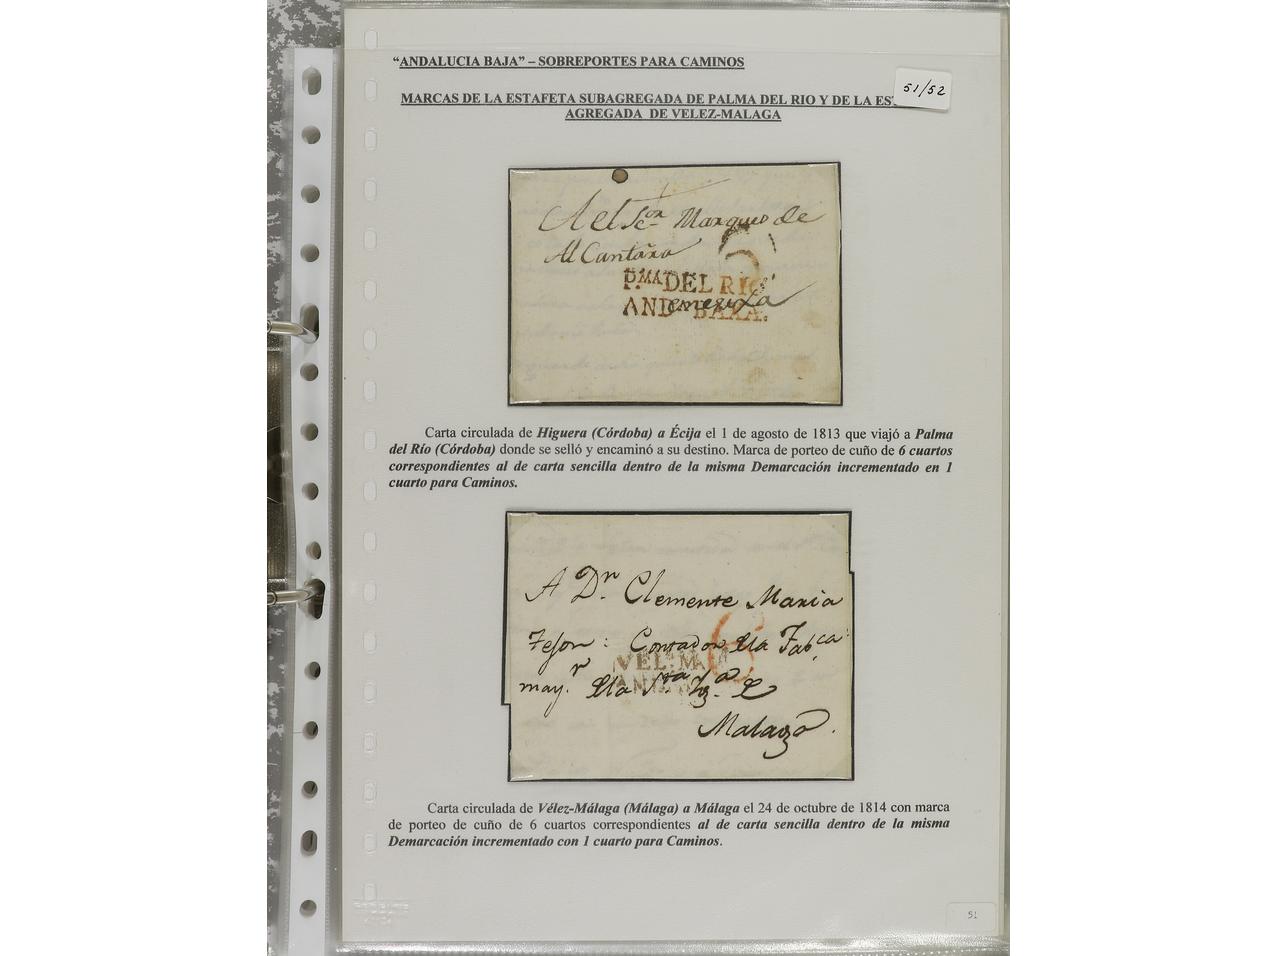 “ANDALUCIA BAJA” – SOBREPORTES PARA CAMINOS
51/52
MARCAS DE LA ESTAFETA SUBAGREGADA DE PALMA DEL RIO Y DE LA ES
AGREGADA DE VELEZ-MALAGA
Marques de
Al Cantara
P.MA DEL RIO
AND.A BAXA.
Carta circulada de Higuera (Córdoba) a Écija el 1 de agosto de 1813 que viajó a Palma
del Río (Córdoba) donde se selló y encaminó a su destino. Marca de porteo de cuño de 6 cuartos
correspondientes al de carta sencilla dentro de la misma Demarcación incrementado en 1
cuarto para Caminos.
A Dn. Clemente Maria
Tejon: Contador Fabca
6
VEL: MA
mayr.
Malaga.
Carta circulada de Vélez-Málaga (Málaga) a Málaga el 24 de octubre de 1814 con marca
de porteo de cuño de 6 cuartos correspondientes al de carta sencilla dentro de la misma
Demarcación incrementado con 1 cuarto para Caminos.
51